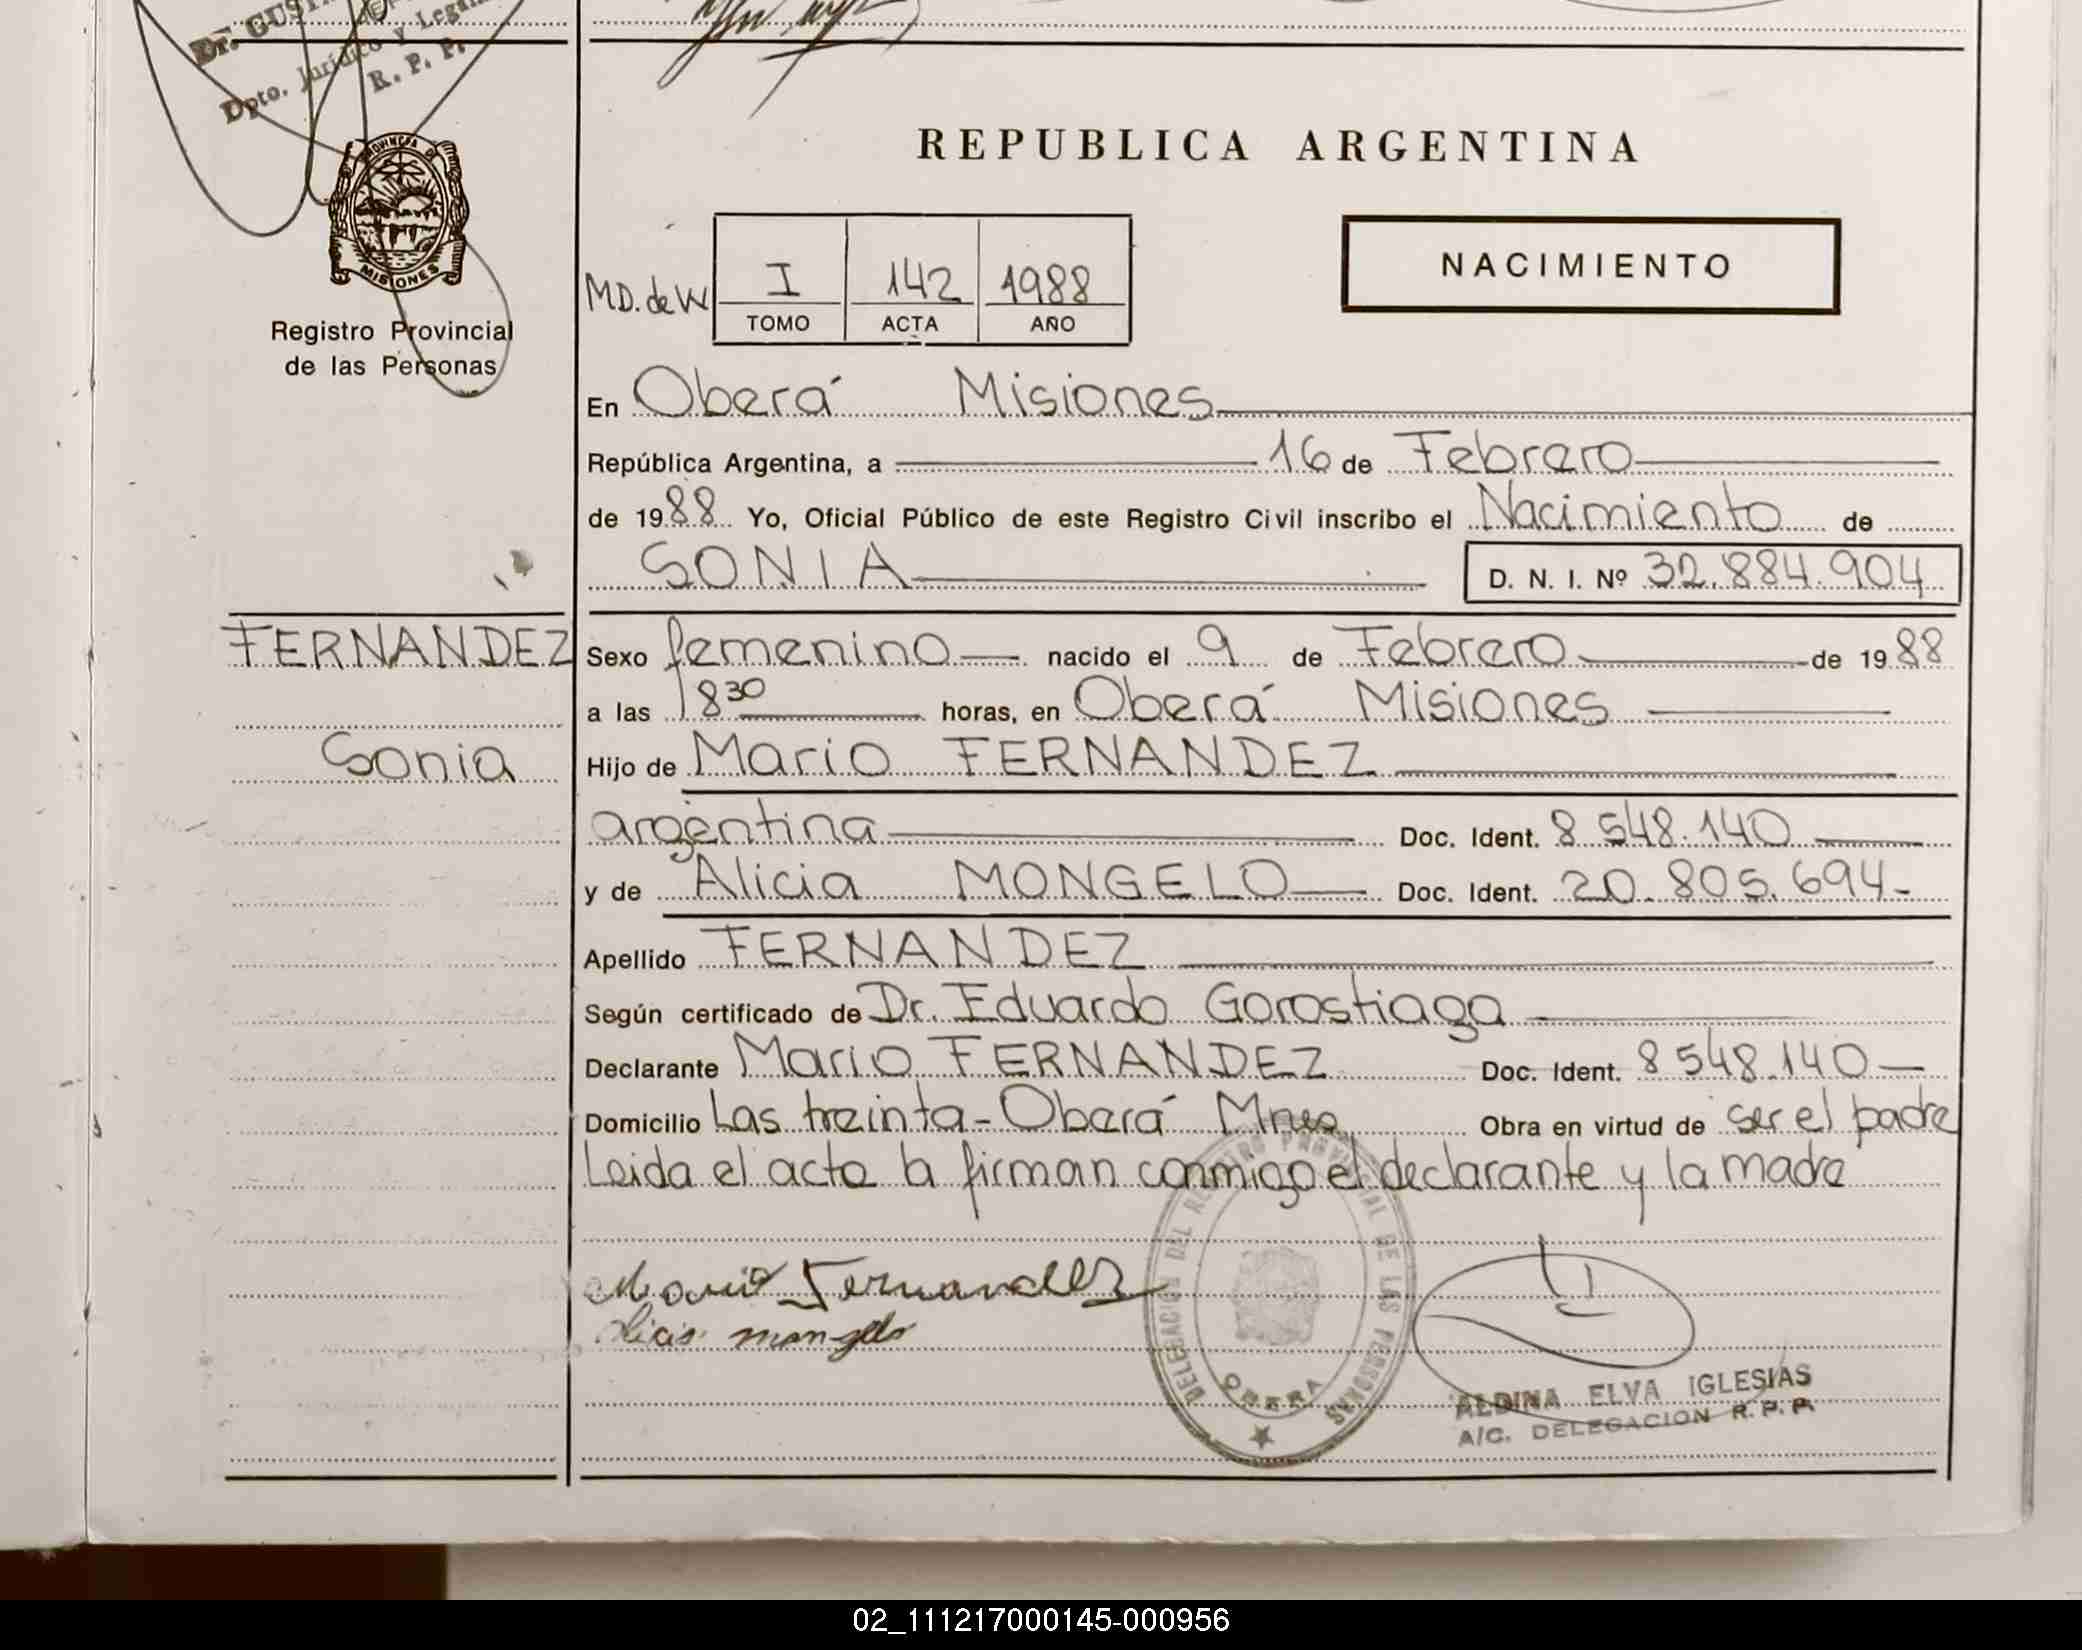 Dr. GUST
Dpto. Jurídico y Legal
R. P. P.
PROVINCIA DE
MISIONES
Registro Provincial
de las Personas
REPUBLICA ARGENTINA
NACIMIENTO
MD. de W I 142 1988
TOMO ACTA AÑO
En Oberá Misiones
República Argentina, a 16 de Febrero
de 1988 Yo, Oficial Público de este Registro Civil inscribo el Nacimiento de
SONIA D. N. I. Nº 32.884.904
FERNANDEZ
Sonia
Sexo femenino nacido el 9 de Febrero de 1988
a las 18 30 horas, en Oberá Misiones
Hijo de Mario FERNANDEZ
argentina Doc. Ident. 8.548.140
y de Alicia MONGELO Doc. Ident. 20.805.694-
Apellido FERNANDEZ
Según certificado de Dr. Eduardo Gorostiaga
Declarante Mario FERNANDEZ Doc. Ident. 8.548.140
Domicilio Las treinta - Oberá Mnes Obra en virtud de ser el padre
Leida el acta la firman conmigo el declarante y la madre
Mario Fernandez
Alicia mongelo
DELEGACION DEL REGISTRO PROVINCIAL DE LAS PERSONAS
OBERA
ALDINA ELVA IGLESIAS
A/C. DELEGACION R. P. P.
02_111217000145-000956